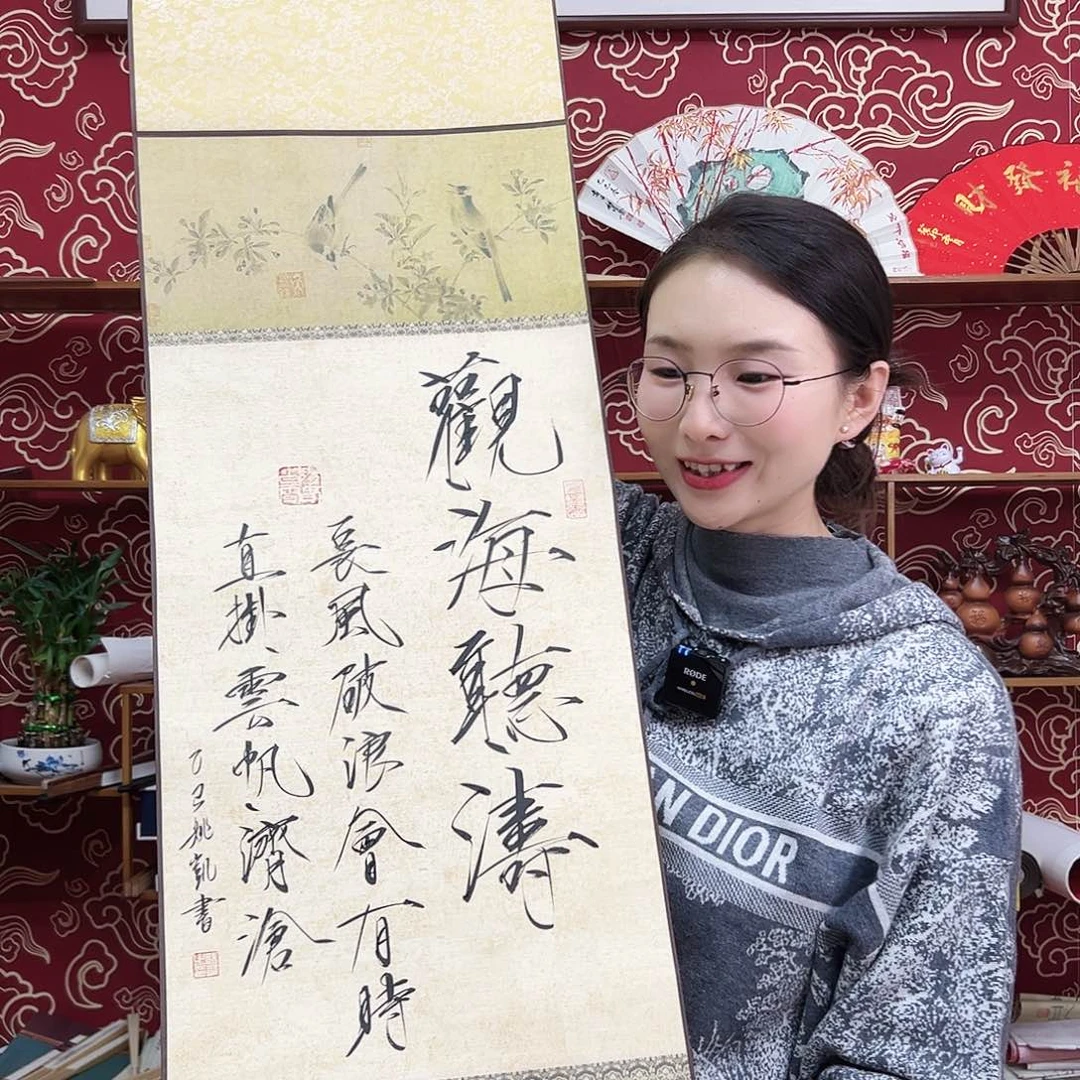 觀海聽濤
長風破浪會有時
直掛雲帆濟滄
乙巳姚凱書
發財
RØDE
N DIOR